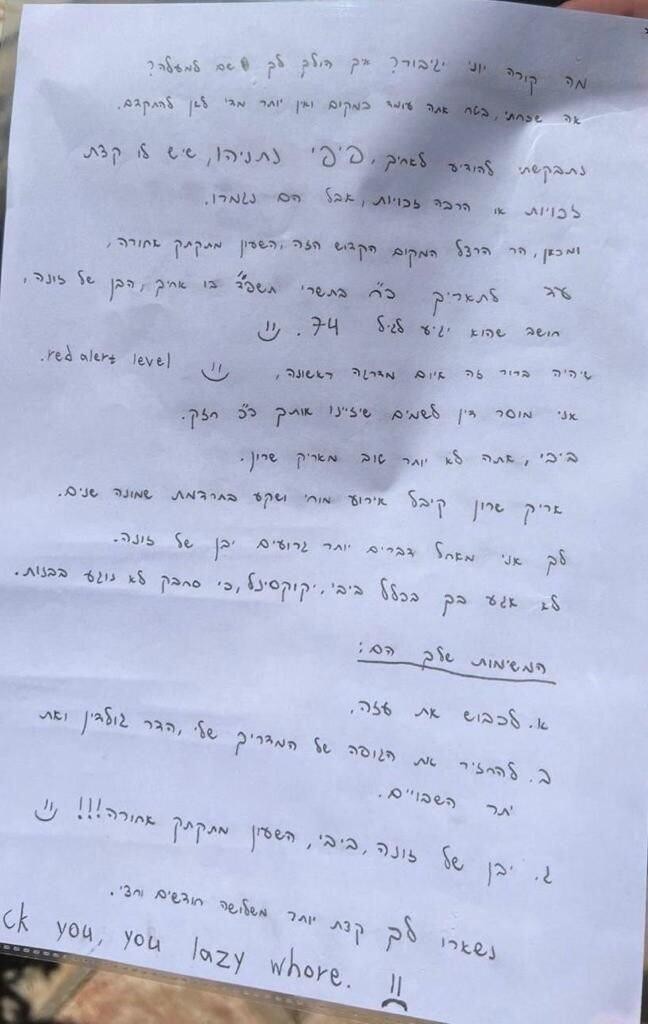 מה קורה יוני יגיבור? איך הולך לך שם למעלה?
אה שכחתי, בטח אתה עומד במקום ואין יותר מדי לאן להתקדם.
נתבקשתי להודיע לאחיך, פיפי נתניהו, שיש לו קצת
זכויות או הרבה זכויות, אבל הם נגמרו.
ומכאן, הר הרצל המקום הקדוש הזה, השעון מתקתק אחורה,
עד לתאריך כ"ח בתשרי תשפ"ד בו אחיך, הבן של זונה,
חושב שהוא יגיע לגיל 74.
שיהיה ברור זה איום מדרגה ראשונה, red alert level.
אני מוסר דין לשמים שיזיינו אותך כ"כ חזק.
ביבי, אתה לא יותר טוב מאריק שרון.
אריק שרון קיבל אירוע מוחי ושקע בתרדמת שמונה שנים.
לך אני מאחל דברים יותר גרועים יבן של זונה.
לא אגע בך בכלל ביבי, יקוקסינל, כי סחבק לא נוגע בבנות.
המשימות שלך הם:
א. לכבוש את עזה.
ב. להחזיר את הגופה של המדריך שלי, הדר גולדין ואת
יתר השבויים.
ג. יבן של זונה, ביבי, השעון מתקתק אחורה!!!
נשארו לך קצת יותר משלושה חודשים וחצי.
ck you, you lazy whore.